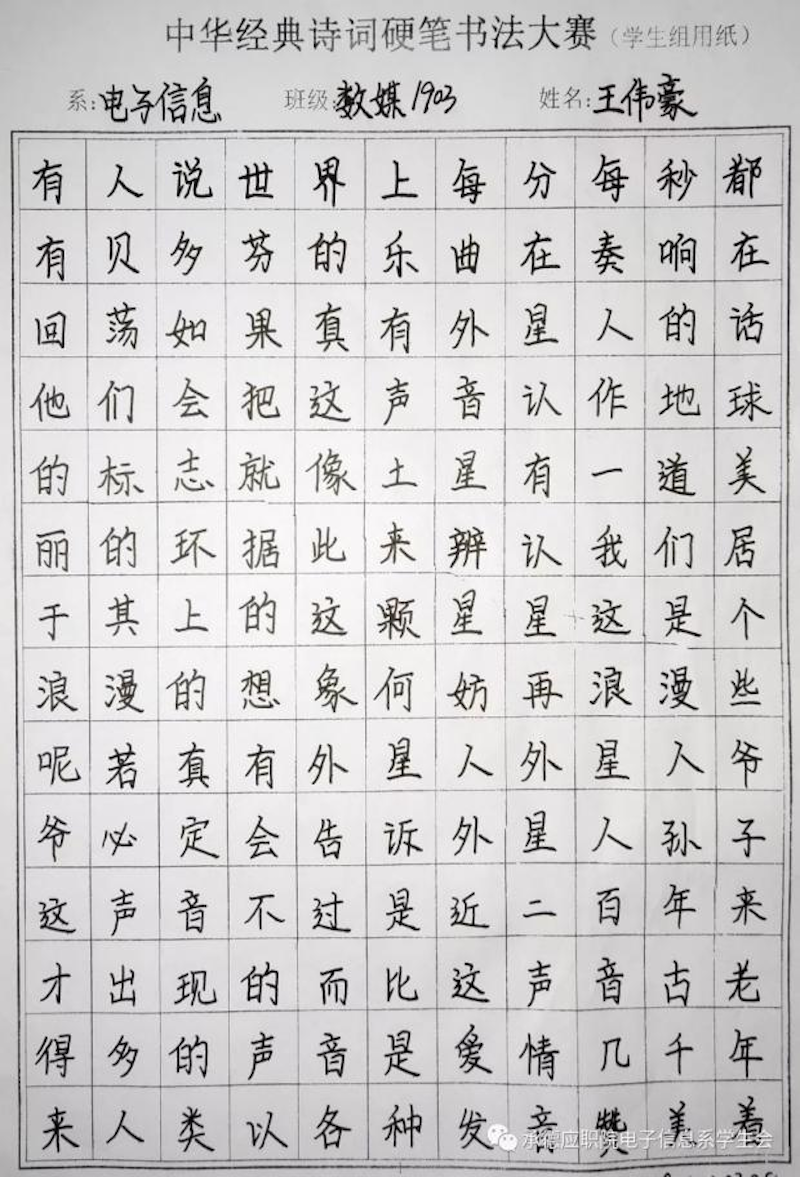 中华经典诗词硬笔书法大赛(学生组用纸)
系:电子信息 班级:数媒1903 姓名:王伟豪
有人说世界上每分每秒都
有贝多芬的乐曲在奏响在
回荡如果真有外星人的话
他们会把这声音认作地球
的标志就像土星有一道美
丽的环据此来辨认我们居
于其上的这颗星星这是个
浪漫的想象何妨再浪漫些
呢若真有外星人外星人爷
爷必定会告诉外星人孙子
这声音不过是近二百年来
才出现的而比这声音古老
得多的声音是爱情几千年
来人类以各种发音赞美着
承德应职院电子信息系学生会